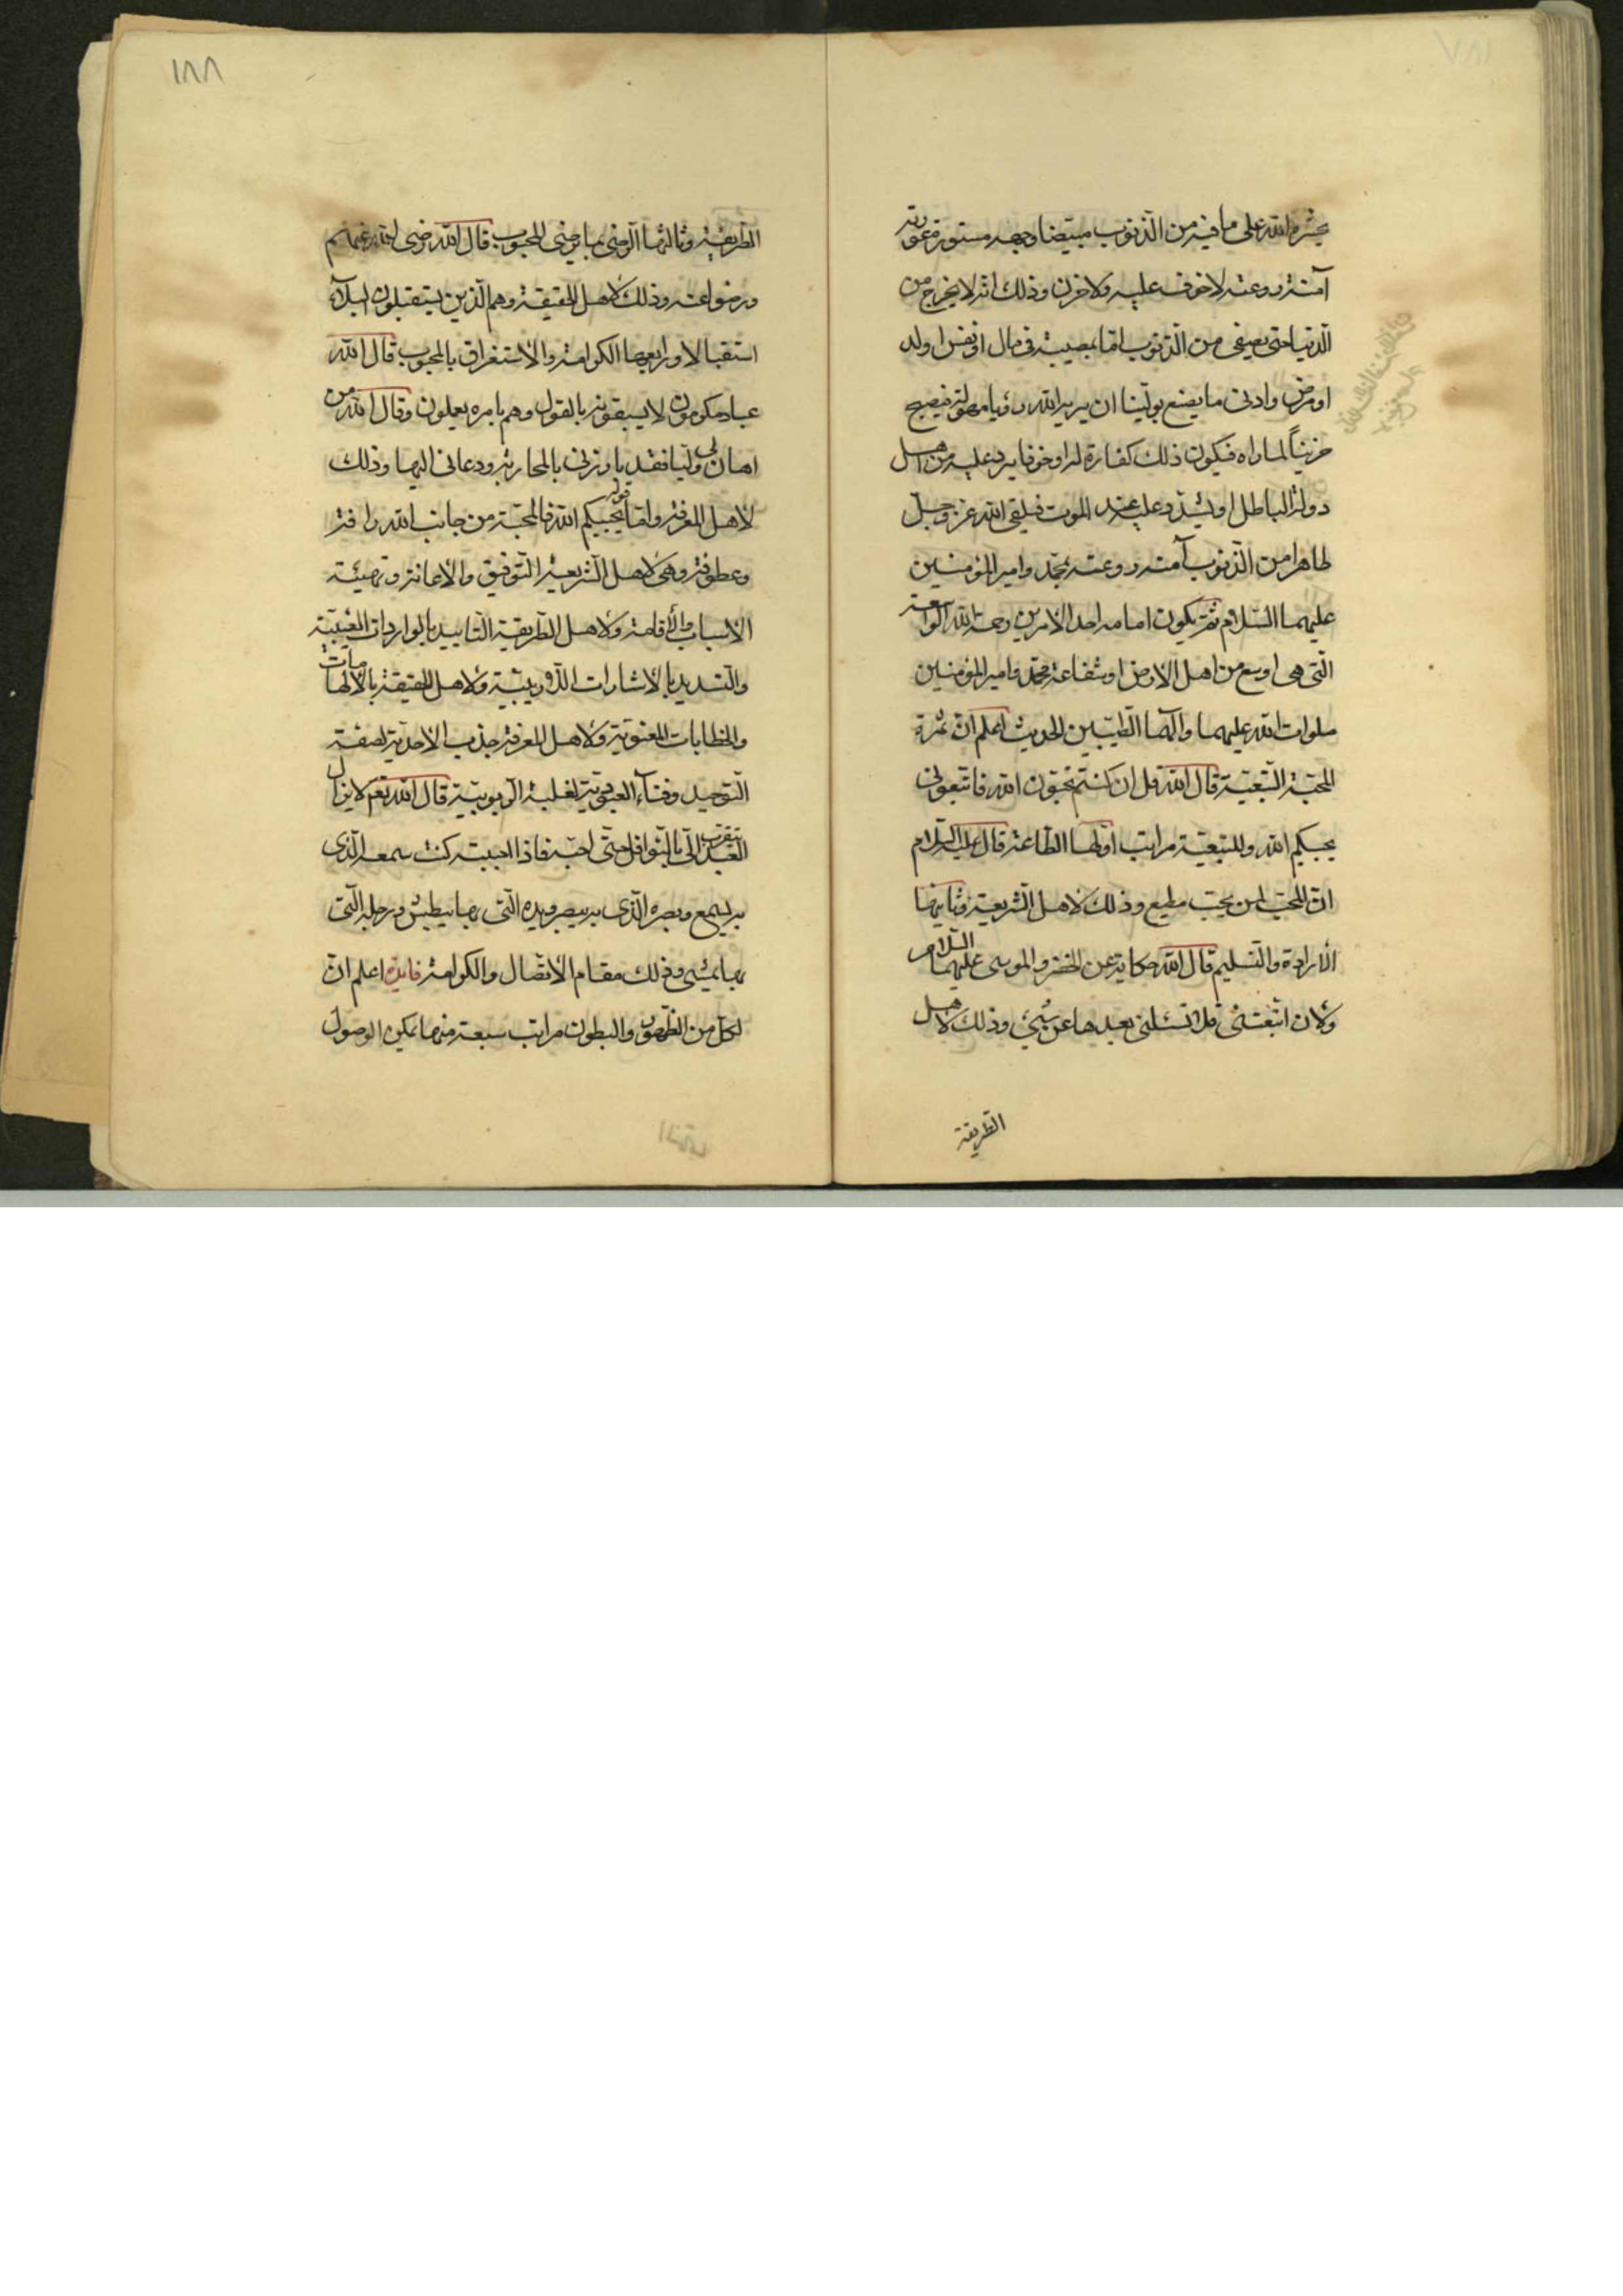 يحشره الله على ما فيه من الذنوب مبيضا وجهه مستورة عورته
آمنة روعته لا خوف عليه ولا حزن وذلك انه لا يخرج من
الدنيا حتى يصفى من الذنوب اما بمصيبة فى مال او نفس او ولد
او مرض وادنى ما يصنع بولينا ان يريه الله رؤيا مهولة فيصبح
حزيناً لما راه فيكون ذلك كفارة له او خوفا يرد عليه من اهل
دولة الباطل او يشدد عليه عند الموت فيلقى الله عز وجل
طاهرا من الذنوب آمنة روعته بمحمد وامير المؤمنين
عليهما السلام ثم يكون امامه احد الامرين رحمة الله الواسعة
التى هى اوسع من اهل الارض او شفاعة محمد وامير المؤمنين
صلوات الله عليهما وآلهما الطيبين الحديث اعلم ان ثمرة
المحبة التبعية قال الله قل ان كنتم تحبون الله فاتبعونى
يحببكم الله وللتبعية مراتب اولها الطاعة قال عليه السلام
ان المحب لمن يحب مطيع وذلك لاهل الشريعة وثانيها
الأرادة والتسليم قال الله حكاية عن الخضر والموسى عليهما السلام
ولان اتبعتنى فلا تسئلنى بعدها عن شىء وذلك لاهل
الطريقة
١٨٨
الطريقة وثالثها الرضى بما يرضى المحبوب قال الله رضى الله عنهم
ورضوا عنه وذلك لأهل الحقيقة وهم الذين يستقبلون البلآء
استقبالا ورابعها الكرامة والأستغراق بالمحبوب قال الله
عباد مكرمون لا يسبقونه بالقول وهم بامره يعملون وقال الله من
اهان لى وليا فقد بارزنى بالمحاربة ودعانى اليها وذلك
لأهل المعرفة واما قوله يحببكم الله فالمحبة من جانب الله رافة
وعطوفة وهى لأهل الشريعة التوفيق والأعانة وتهيئة
الأسباب والأقامة ولأهل الطريقة التاييد بالواردات الغيبية
والتسديد بالأشارات ولأهل الحقيقة بالألهامات
والخطابات المعنوية ولأهل المعرفة جذب الأحدية لصفة
التوحيد وفنآء العبودية لغلبة الربوبية قال الله نعم لا يزال
يتقرب العبد الىّ بالنوافل حتى احبه فاذا احببته كنت سمعه الذى
به يسمع وبصره الذى به يبصر ويده التى بها يبطش ورجله التى
بها يمشى وذلك مقام الأتصال والكرامة فايدة اعلم ان
لكل من الظهور والبطون مراتب سبعة منها يمكن الوصول